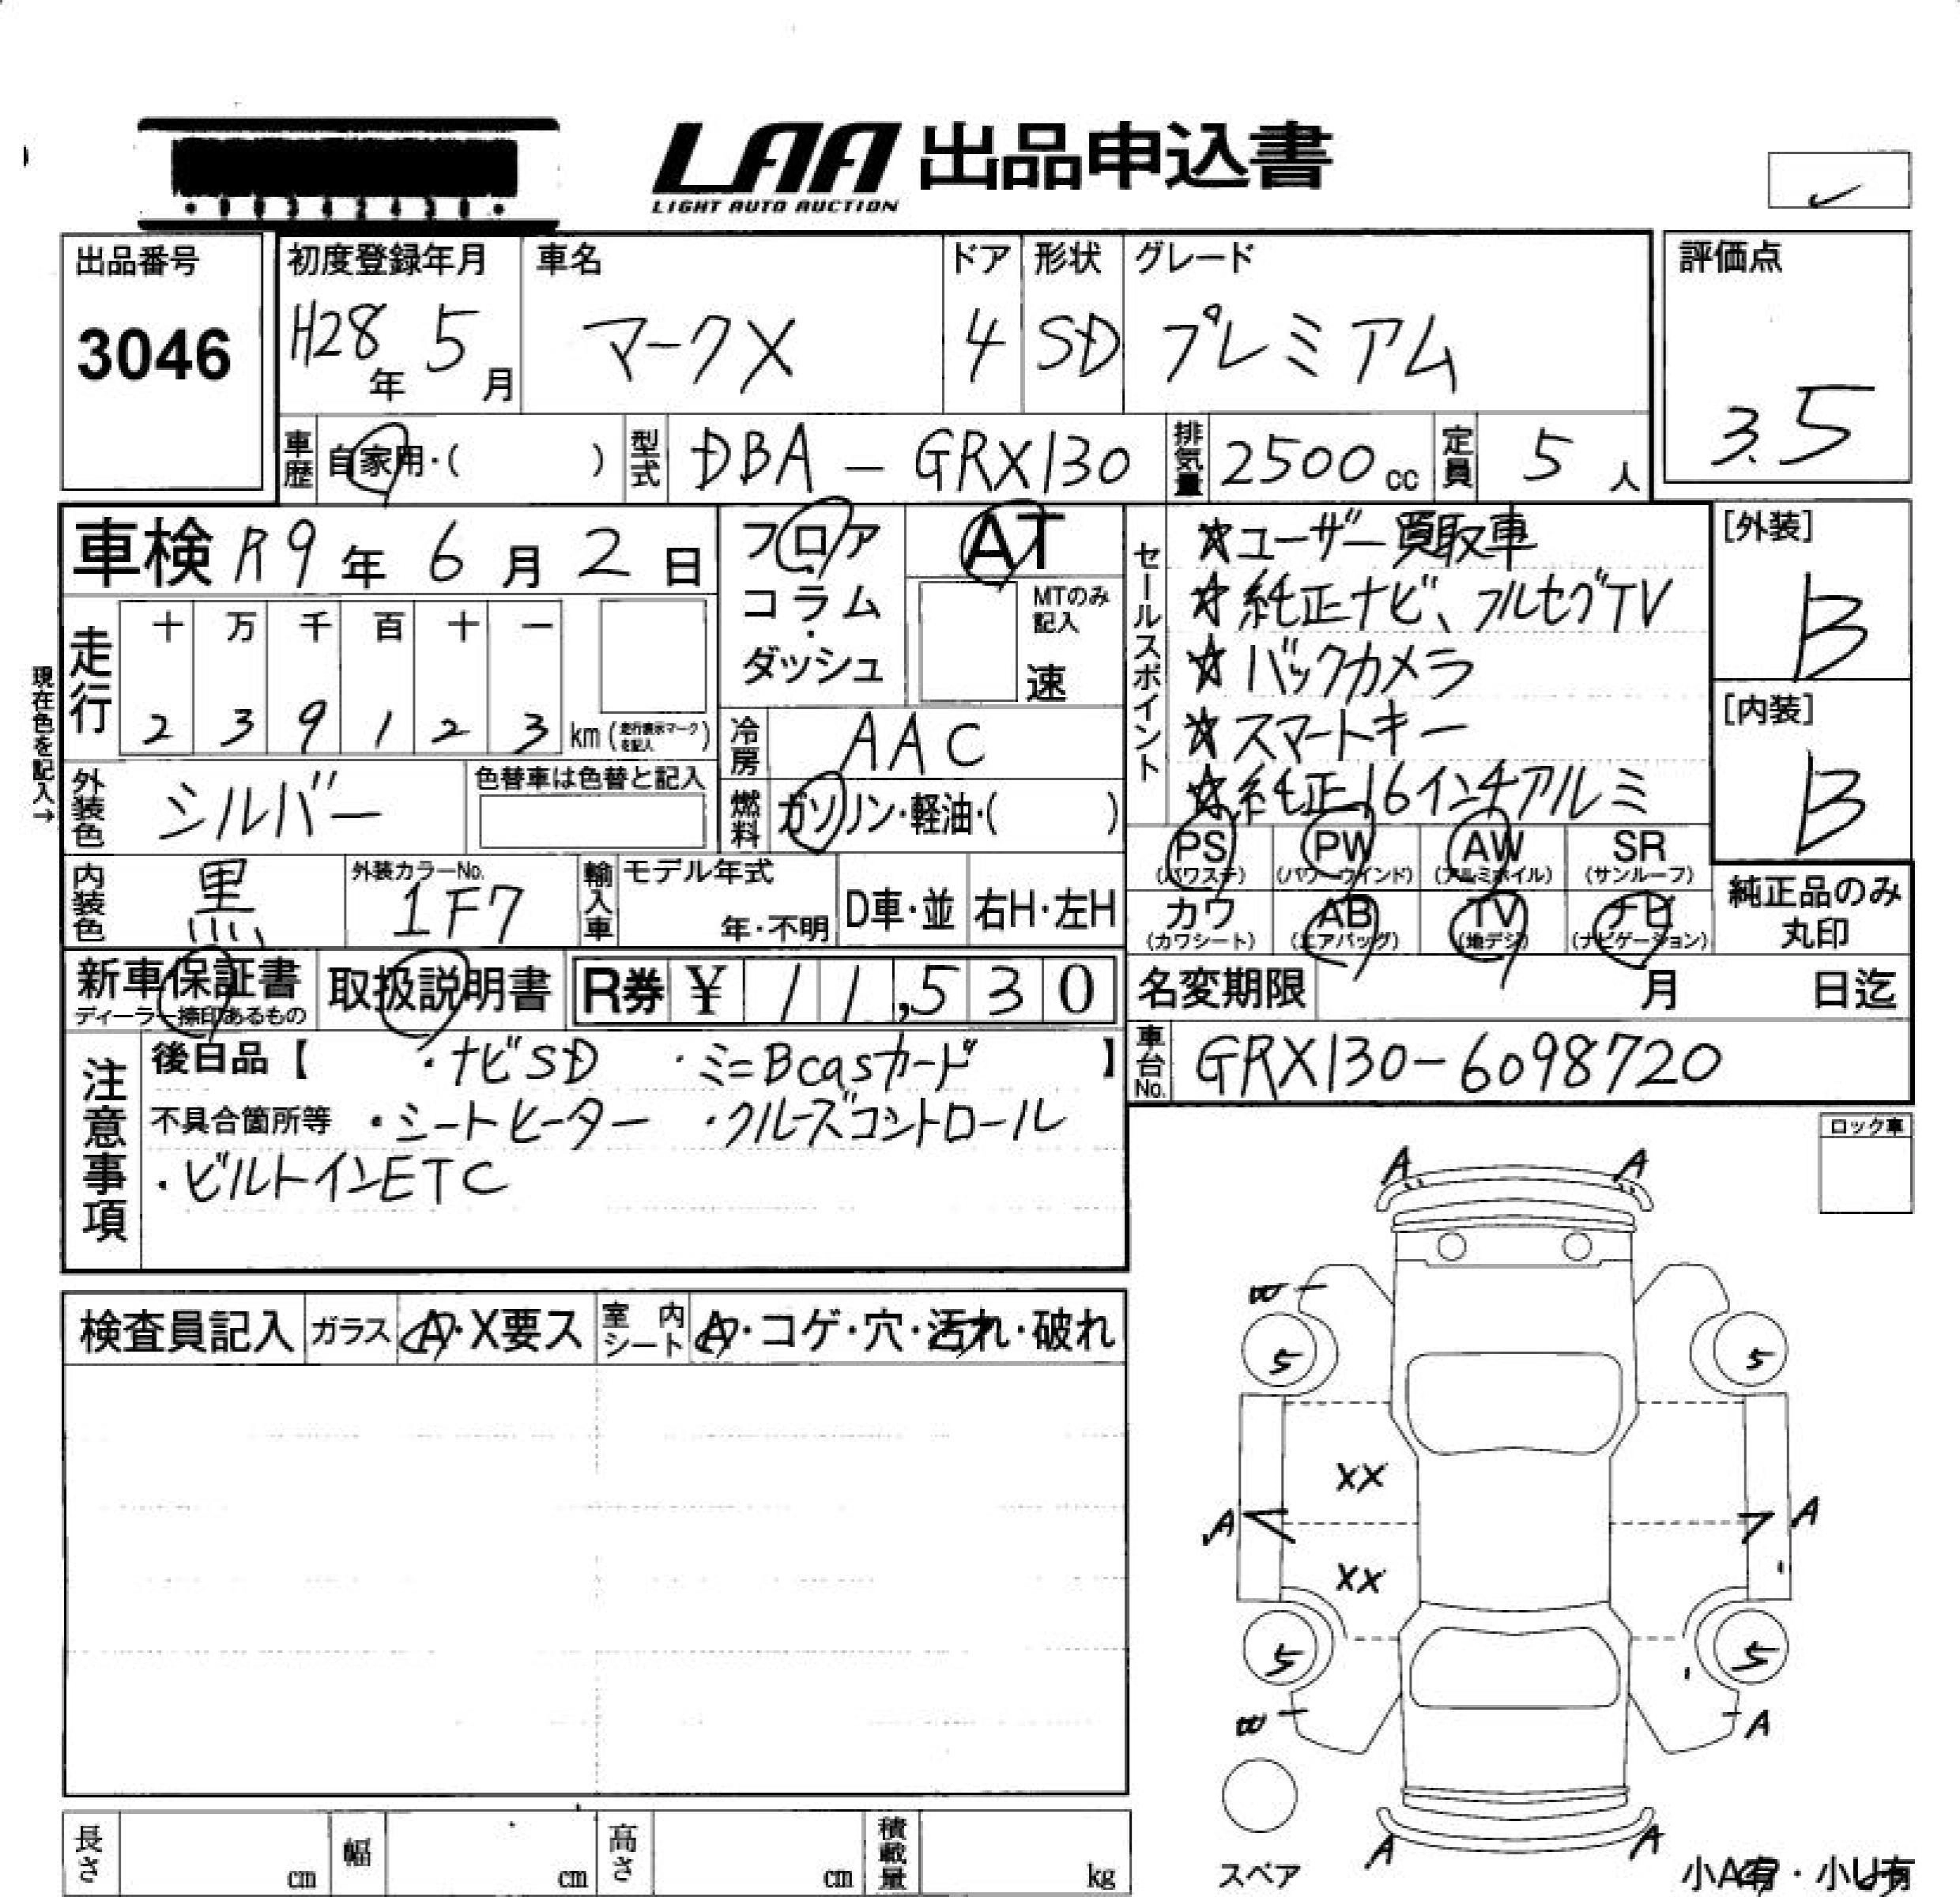 LAA 出品申込書
LIGHT AUTO AUCTION
出品番号
3046
初度登録年月
H28年 5月
車名
マークX
ドア
4
形状
SD
グレード
プレミアム
評価点
3.5
車歴 自家用・( )
型式 DBA - GRX130
排気量 2500 cc
定員 5 人
車検 R9年 6月 2日
フロア・コラム・ダッシュ
AT
MTのみ記入
速
セールスポイント
☆ユーザー買取車
☆純正ナビ、フルセグTV
☆バックカメラ
☆スマートキー
☆純正16インチアルミ
[外装]
B
[内装]
B
現在色を記入→
走行
十 万 千 百 十 一
2 3 9 1 2 3 km (走行表示マークを記入)
冷房 AAC
燃料 ガソリン・軽油・( )
外装色 シルバー
色替車は色替と記入
内装色 黒
外装カラーNo.
1F7
輸入車
モデル年式
年・不明
D車・並
右H・左H
PS (パワステ)
PW (パワーウインド)
AW (アルミホイル)
SR (サンルーフ)
カワ (カワシート)
AB (エアバッグ)
TV (地デジ)
ナビ (ナビゲーション)
純正品のみ
丸印
新車保証書
ディーラー捺印あるもの
取扱説明書
R券 ¥ 11,530
名変期限 月 日迄
車台No. GRX130-6098720
注意事項
後日品【 ・ナビSD ・ミニBcasカード 】
不具合箇所等 ・シートヒーター ・クルーズコントロール
・ビルトインETC
ロック車
検査員記入
ガラス A・X要ス
室内シート A・コゲ・穴・汚れ・破れ
A A
W
5 5
XX
A A
XX
5 5
W A
A A
スペア
小A有・小U有
長さ cm
幅 cm
高さ cm
積載量 kg